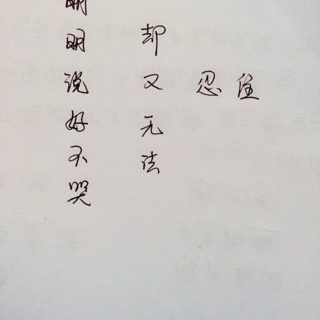 明明说好不哭
却又无法
忍住